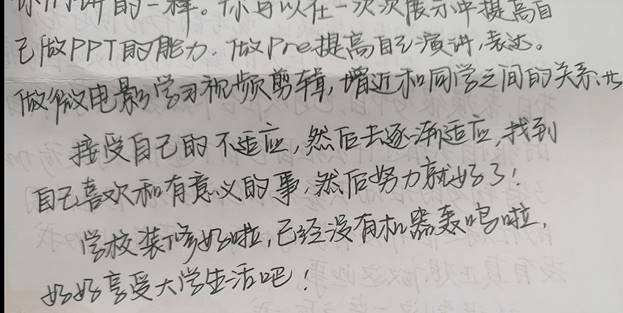 你们讲的一样。你可以在一次次展示中提高自
己做PPT的能力.做Pre提高自己演讲.表达。
做微电影学习视频剪辑,增近和同学之间的关系..
接受自己的不适应,然后去逐渐适应,找到
自己喜欢和有意义的事,然后努力就好了!
学校装修好啦,已经没有机器轰鸣啦,
好好享受大学生活吧!